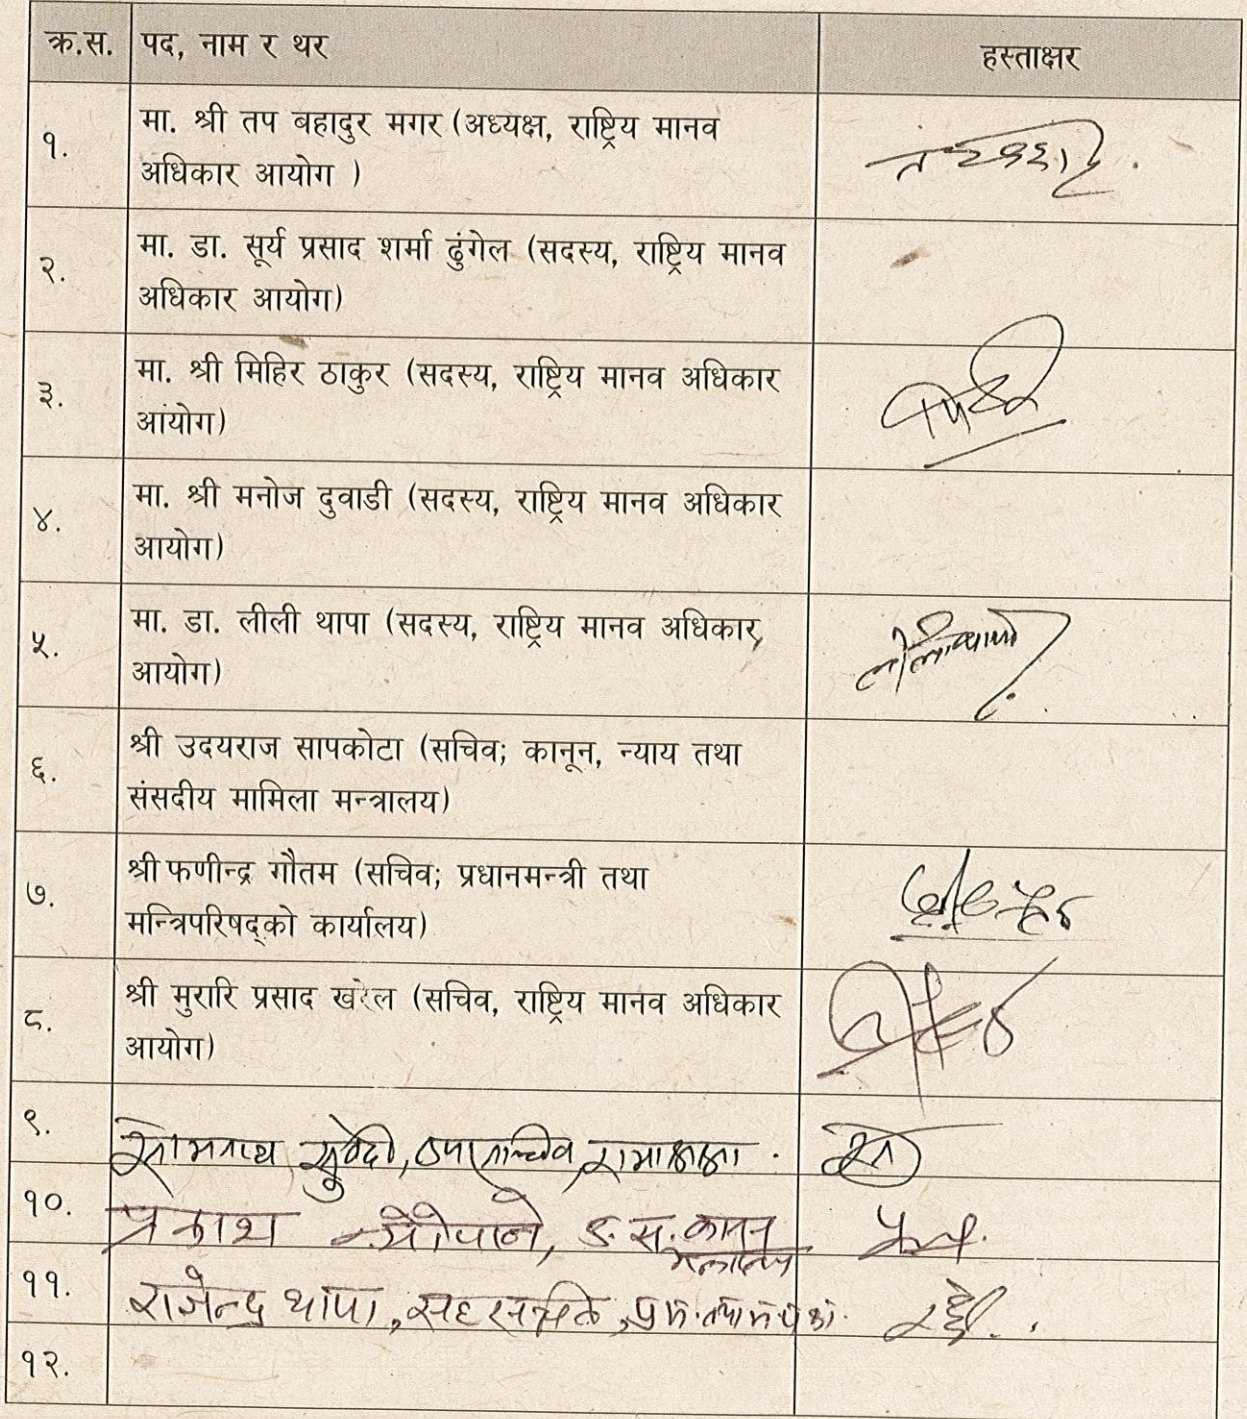 क्र.स. पद, नाम र थर हस्ताक्षर
१. मा. श्री तप बहादुर मगर (अध्यक्ष, राष्ट्रिय मानव
अधिकार आयोग )
२. मा. डा. सूर्य प्रसाद शर्मा ढुंगेल (सदस्य, राष्ट्रिय मानव
अधिकार आयोग)
३. मा. श्री मिहिर ठाकुर (सदस्य, राष्ट्रिय मानव अधिकार
आयोग)
४. मा. श्री मनोज दुवाडी (सदस्य, राष्ट्रिय मानव अधिकार
आयोग)
५. मा. डा. लीली थापा (सदस्य, राष्ट्रिय मानव अधिकार,
आयोग) लीली थापा
६. श्री उदयराज सापकोटा (सचिव; कानून, न्याय तथा
संसदीय मामिला मन्त्रालय)
७. श्री फणीन्द्र गौतम (सचिव; प्रधानमन्त्री तथा
मन्त्रिपरिषद्को कार्यालय)
८. श्री मुरारि प्रसाद खरेल (सचिव, राष्ट्रिय मानव अधिकार
आयोग)
९. सुवेदी,
१०. प्रकाश
११. राजेन्द्र थापा,
१२.